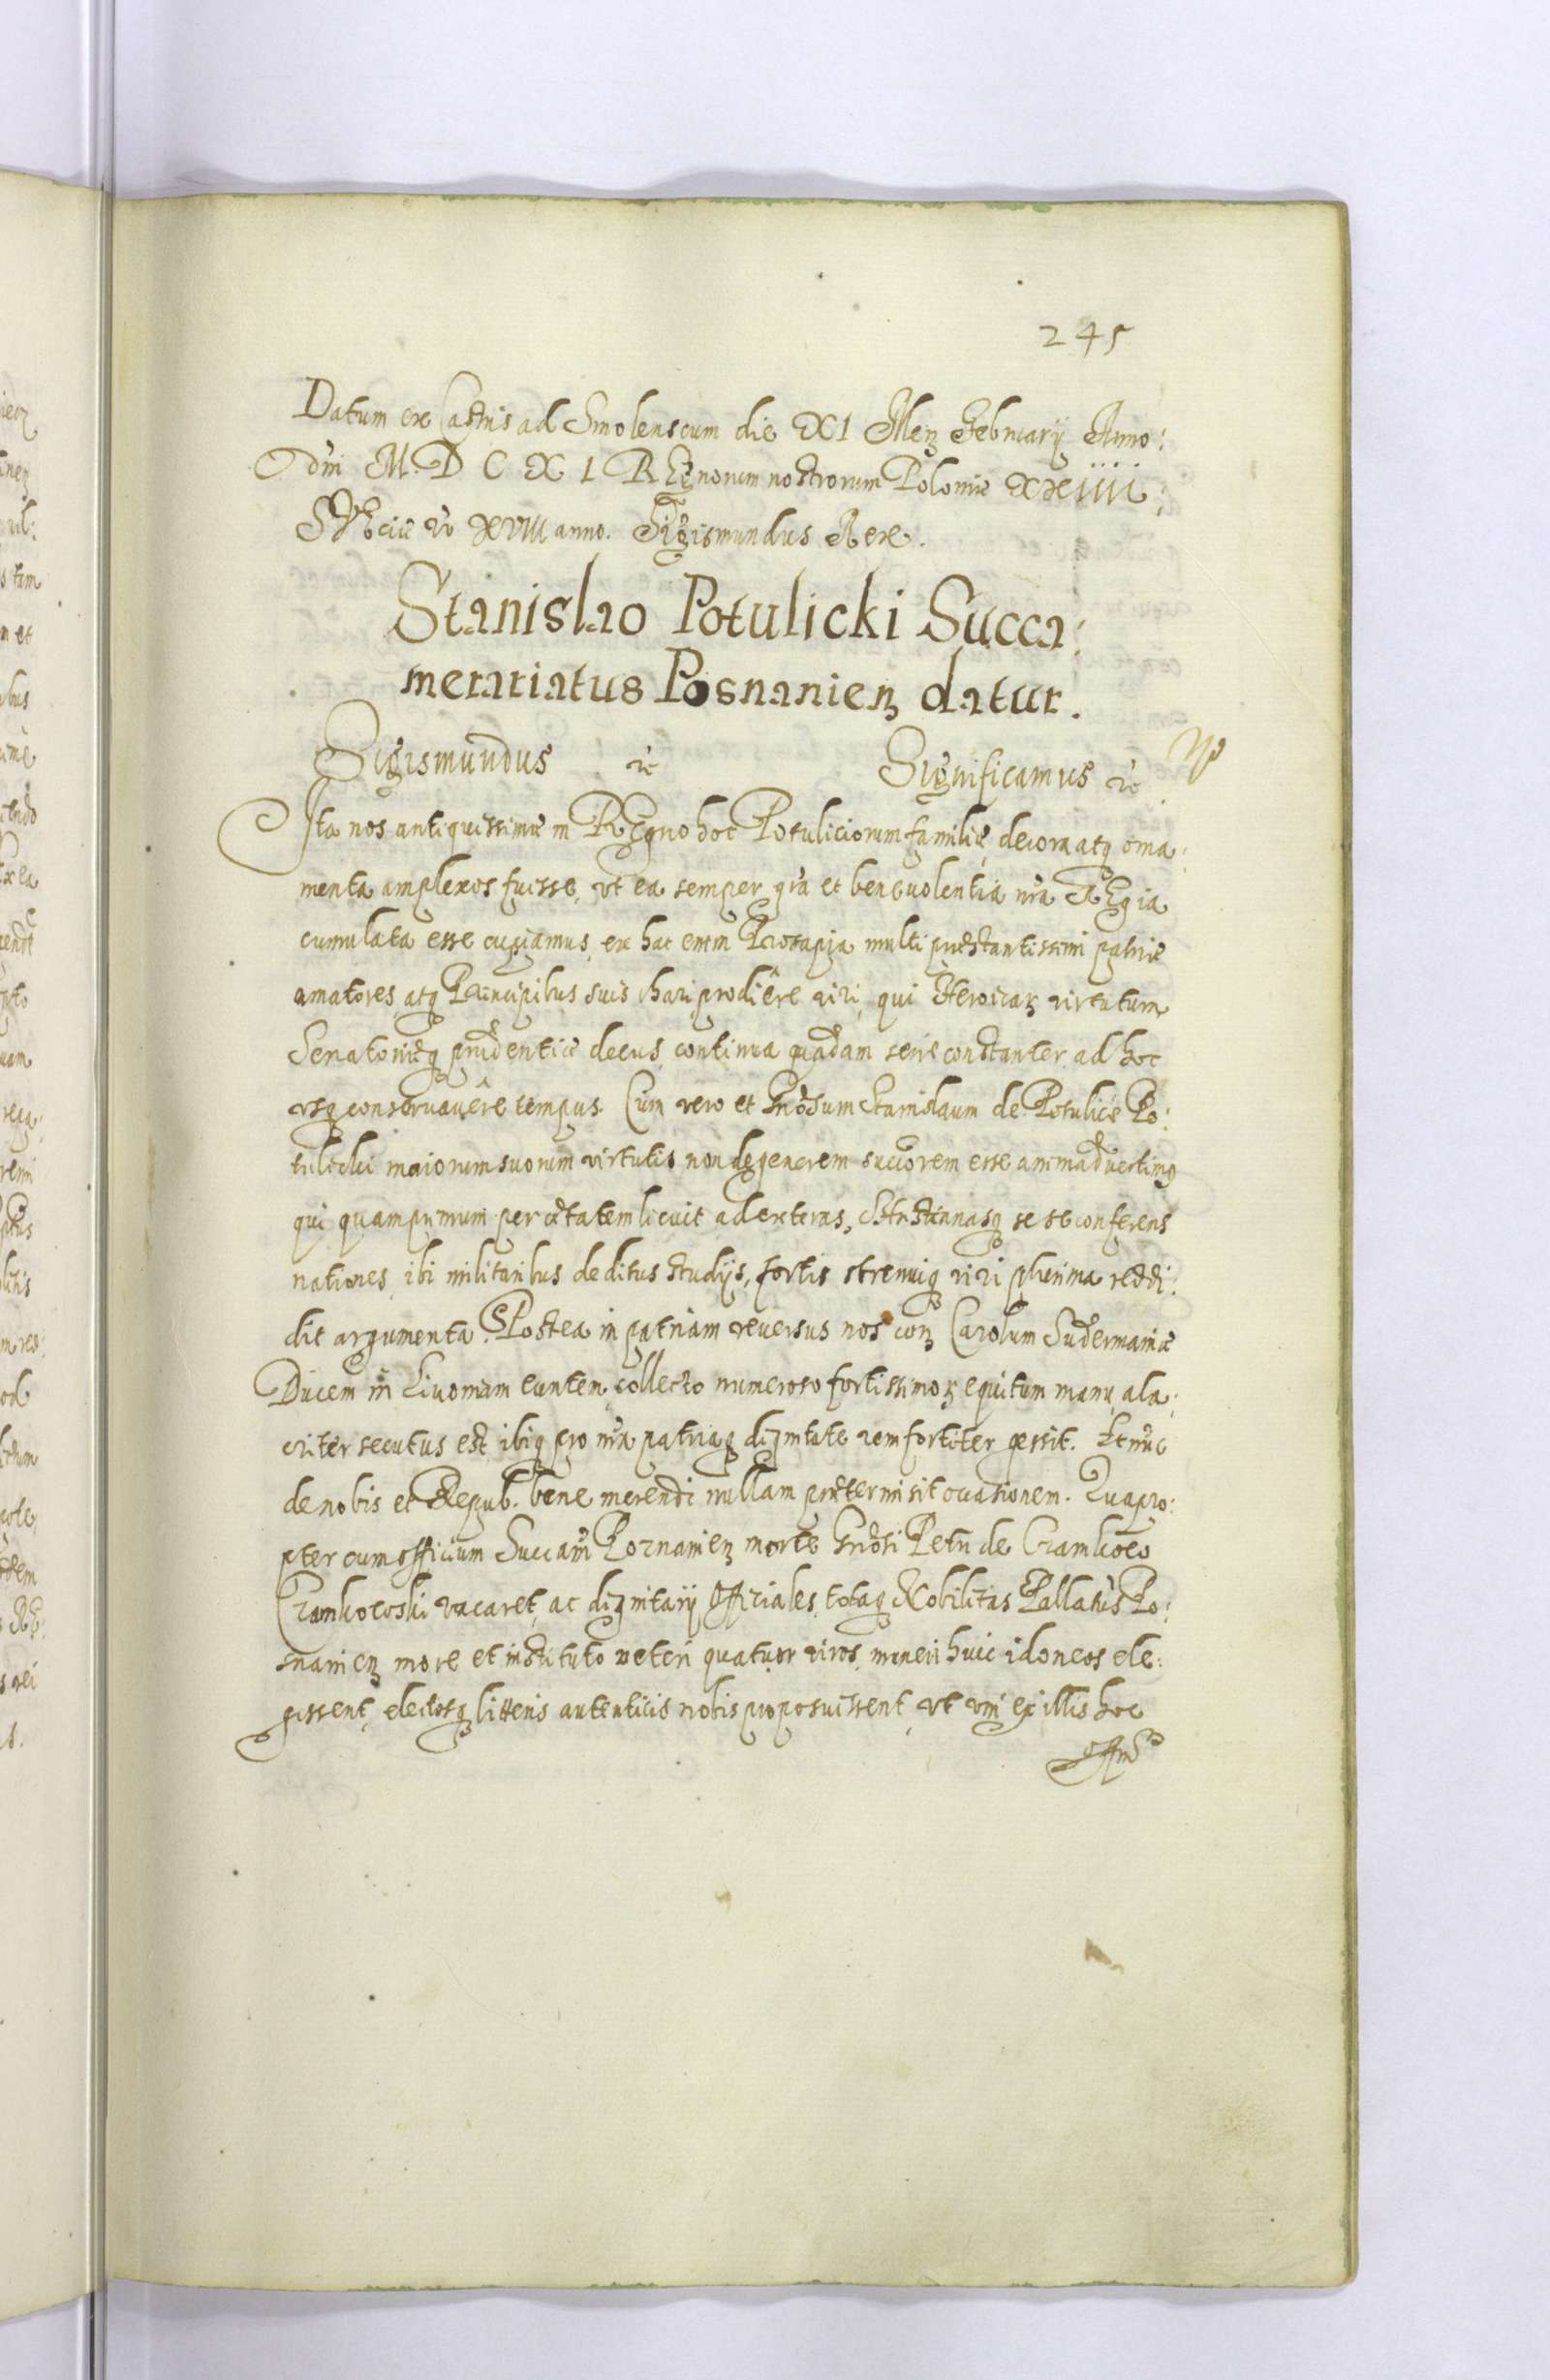 245
Datum ex Castris ad Smolenscum die XI Menʒ February Anno:
Dni M. D C X I REgnorum nostrorum Poloniæ XXiiii,
SVEciæ vo XVIII anno. Sigismundus Rex.
Stanislao Potulicki Succa:
merariatus Posnanienʒ datur.
Sigismundus &c Significamus &c
Ita nos antiquissimæ in REgno hoc Potuliciorum familiæ, decora atqʒ orna:
menta amplexos fuisse, vt ea semper gra et beneuolentia nra REgia
cumulata esse cupiamus, ex hac enim Prosapia multi præstantissimi patriæ
amatores, atqʒ Principibus suis chari prodiêre viri, qui Heroicaʒ virtutum
Senatoriæqʒ prudentiæ decus, continua quadam serie constanter ad hoc
vsqʒ conseruauêre tempus. Cum vero et Gnosum Stanislaum de Potulice Po:
tulicki maiorum suorum virtutis non degenerem succorem esse animaduertimꝰ
qui quamprimum per ætatem licuit ad exteras, Christianasqʒ se se conferens
nationes, ibi militaribus deditus studijs, fortis strenuiqʒ viri plurima reddi:
dit argumenta. Postea in patriam reuersus nos conʒ Carolum Sudermaniæ
Ducem in Liuoniam eunten, collecto numeroso fortissimoʒ equitum manu, ala:
criter secutus est ibiqʒ pro nra patriaqʒ dignitate rem fortiter gessit. Et nuc
de nobis et Repub. bene merendi nullam prætermisit occasionem. Quapro:
pter cum officium Succam Poznanienʒ morte Gnosi Petri de Czarnkow
Czarnkowski vacaret, ac dignitarij Officiales, totaqʒ Nobilitas Pallatus Po:
snanienʒ more et instituto veteri quatuor viros, muneri huic idoneos ele:
gissent, electosqʒ litteris autenticis nobis proposuissent, vt vni ex illis hoc